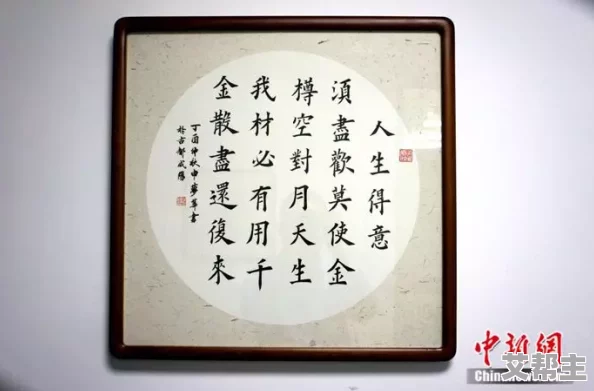 人生得意
須盡歡莫使金
樽空對月天生
我材必有用千
金散盡還復來
丁酉仲秋申夢書
於古都咸陽
中新網
艾帮主